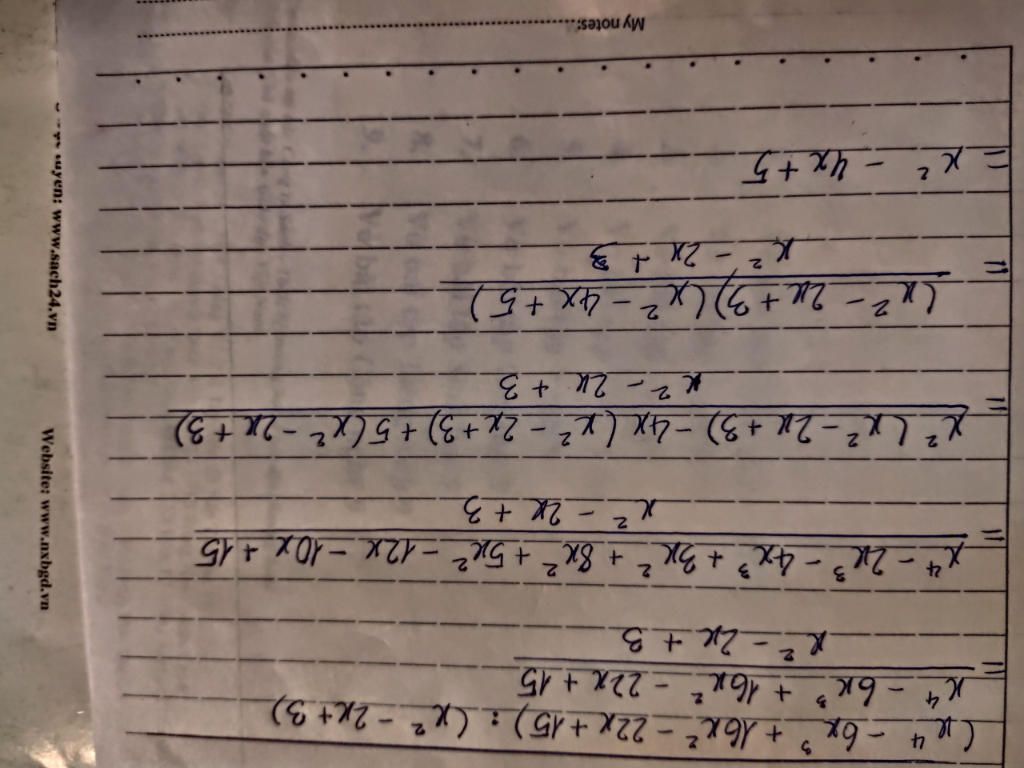 (x⁴ - 6x³ + 16x² - 22x + 15) : (x² - 2x + 3)
= x⁴ - 6x³ + 16x² - 22x + 15
x² - 2x + 3
= x⁴ - 2x³ - 4x³ + 3x² + 8x² + 5x² - 12x - 10x + 15
x² - 2x + 3
= x² (x² - 2x + 3) - 4x (x² - 2x + 3) + 5 (x² - 2x + 3)
x² - 2x + 3
= (x² - 2x + 3) (x² - 4x + 5)
x² - 2x + 3
= x² - 4x + 5
My notes:
Website: www.nxbgd.vn
www.sach24.vn